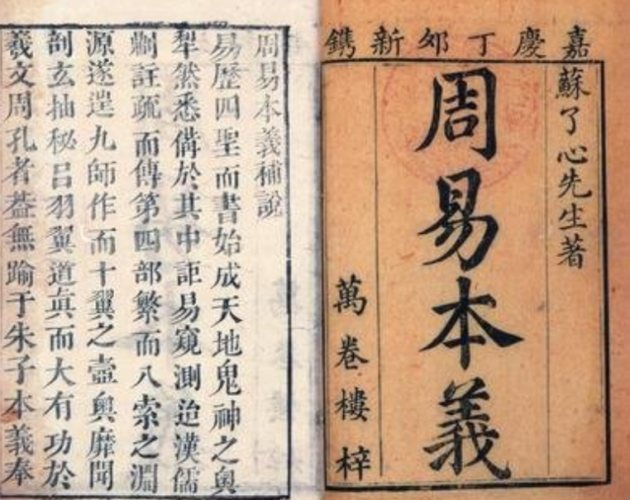 嘉慶丁夘新鐫
蘇了心先生著
周易本義
萬卷樓梓
周易本義補說
易歷四聖而書始成天地鬼神之奥
犁然悉備於其中詎易窺測迨漢儒
註疏而傳第四部繁而八索之淵
源遂遑九師作而十翼之壼奥靡聞
剖玄抽秘吕羽翼道眞而大有功於
羲文周孔者葢無踰于朱子本義奉